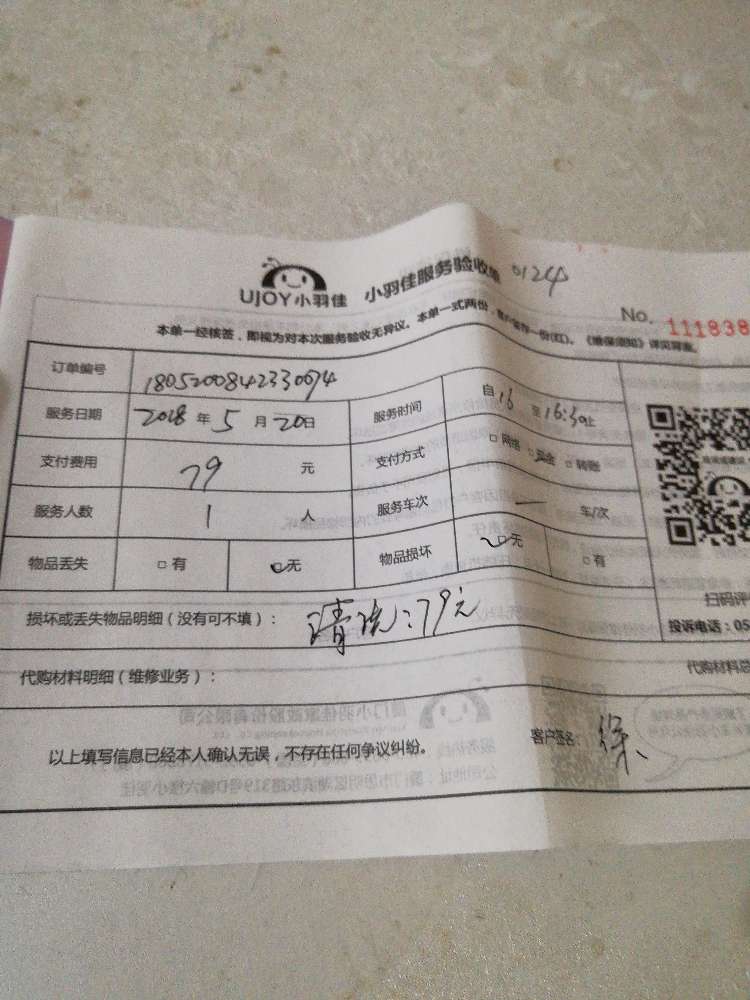 UJOY小羽佳 小羽佳服务验收单 0124
No. 111838
本单一经核签，即视为对本次服务验收无异议。本单一式两份，客户留存一份(红)。《维保须知》详见背面。
订单编号 1805200842330074
服务日期 2018 年 5 月 20 日 服务时间 自 16 至 16:30 止
支付费用 79 元 支付方式 □ 网络 □ 现金 □ 转账
服务人数 1 人 服务车次 一 车/次
物品丢失 □ 有 □ 无 物品损坏 □ 无 □ 有
扫码评
损坏或丢失物品明细（没有可不填）： 清洗：79元
投诉电话：05
代购材料明细（维修业务）： 代购材料总
以上填写信息已经本人确认无误，不存在任何争议纠纷。 客户签名：